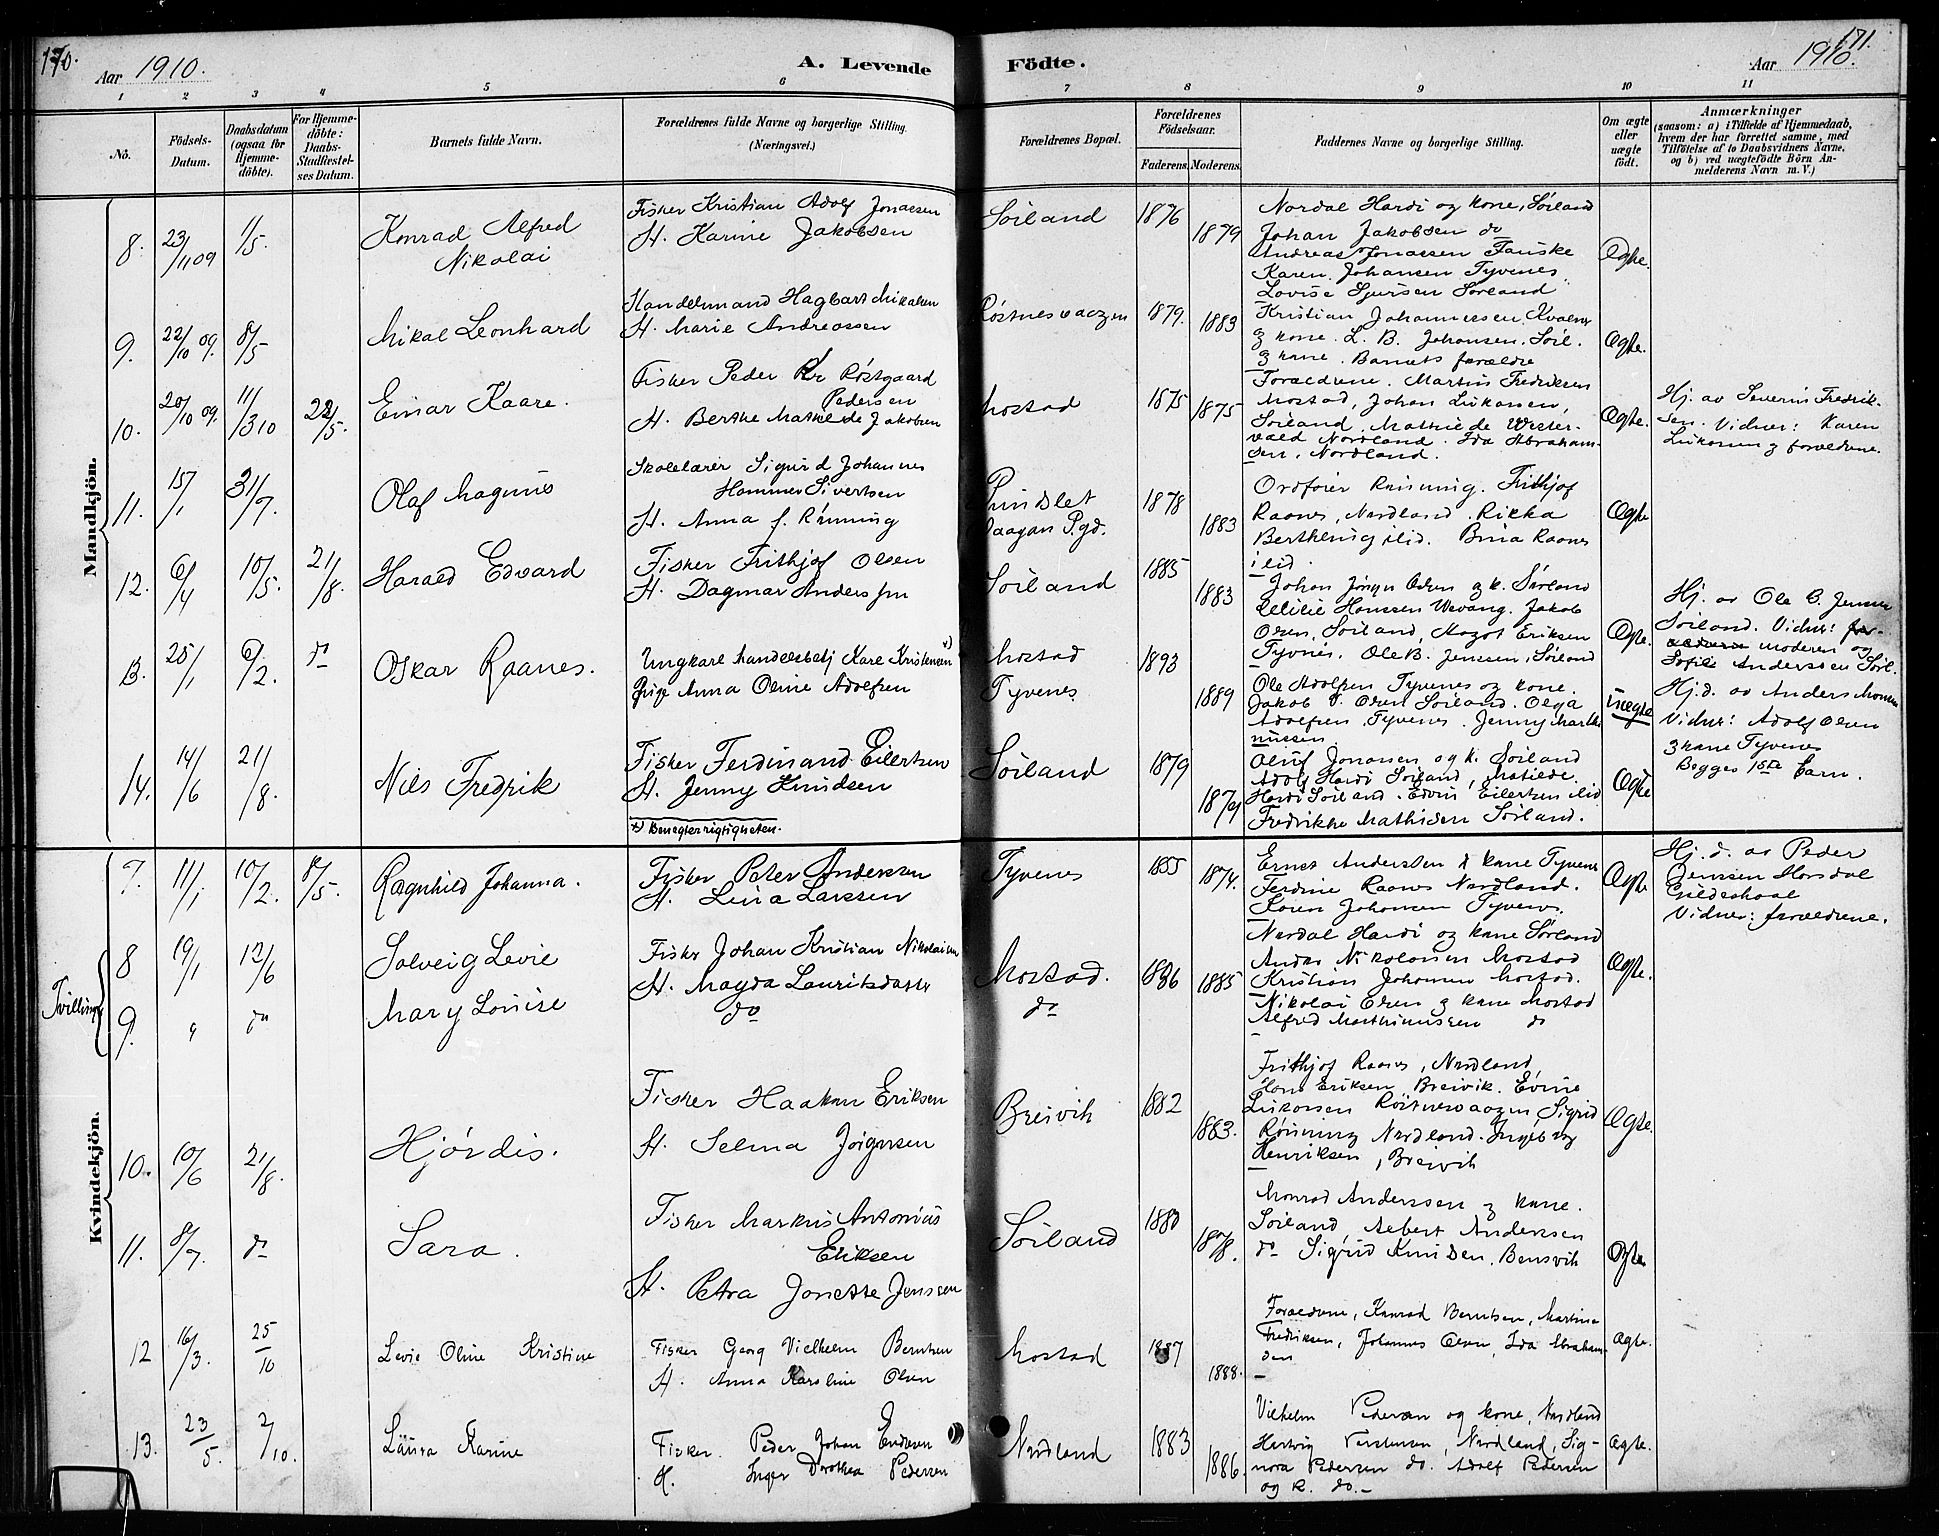 170.
Aar 1910.
A. Levende
Födte.
Aar 1910.
171.
1
2
3
4
5
6
7
8
9
10
11
No.
Födsels-Datum.
Daabsdatum (ogsaa for Hjemme-döbte).
For Hjemme-döbte: Daabs-Stadfæstel-ses Datum.
Barnets fulde Navn.
Forældrenes fulde Navne og borgerlige Stilling.
(Næringsvei.)
Forældrenes Bopæl.
Forældrenes Födselsaar.
Faderens.
Moderens.
Faddernes Navne og borgerlige Stilling.
Om ægte eller uægte födt.
Anmærkninger
(saasom: a) i Tilfælde af Hjemmedaab,
hvem der har forrettet samme, med
Tilföielse af to Daabsvidners Navne,
og b) ved uægtefödte Börn An-
melderens Navn m. V.)
Mandkjön.
8. 23/11 09 1/5. Konrad Alfred
Nikolai
Fisker Kristian Adolf Jonassen
H. Karine Jakobsen
Söiland 1876 1879
Nordal Hardi og kone, Söiland
Johan Jakobsen do
Andreas Jonassen Fauske
Karen Johansen Tyvenes
Lovise Sjursen Sörland
Ægte.
9. 22/10 09. 8/5 Mikal Leonhard
Handelsmand Hagbart Mikalsen
H. Marie Andreassen
Röstnesvaagen 1879. 1883
Kristian Johannessen
& kone. L. B. Johansen. Söil.
& kone. Barnets forældre
Ægte.
10. 20/10 09. 11/3 10 22/5. Einar Kaare.
Fisker Peder Kr Röstgaard
Pedersen
H. Berthe Mathilde Jakobsen
Mostad 1875 1875
Forældrene. Martin Fredriksen
Mostad, Johan Lukassen,
Söiland. Mathilde Wester-
vald Nordland. Ida Abraham-
sen. Nordland.
Ægte.
Hj. av Severin Fredrik-
sen. Vidner: Karen
Lukassen & forældrene.
11. 15/1 31/7. Olaf Magnus
Skolelærer Sigurd Johannes
Hammer Sivertsen
H. Anna f. Rönning
Vaagan Pgd. 1878 1883
Ordförer Rönning. Frithjof
Raanes, Nordland. Rikka
Berthling ilid. Bina Raanes
ilid.
Ægte
12. 6/4 10/5. 21/8. Harald Edvard
Fisker Frithjof Olsen
H. Dagmar Anderssen
Söiland 1885 1883
Johan Jörgen Olsen og k. Sörland
Hanssen. Jakob
Olsen, Söiland, Eriksen
Tyvnes. Ole B. Jenssen, Sörland
Ægte.
Hj. av Ole B. Jenssen
Söiland. Vidner:
moderen og
Sofie Anderssen Söil.
13. 25/1 6/2. do Oskar Raanes.
Ungkarl handelsbetj Kare Kristensen x)
Pige Anna Oline Adolfsen
Mostad
Tyvenes 1893 1889
Ole Adolfsen Tyvenes og kone.
Jakob Olsen Söiland. Olga
Adolfsen Tyvenes. Jenny Marthi
nussen
Uægte
Hj.d. av Anders Monsen
Vidner: Adolf Olsen
& kone Tyvenes
Begges 1ste barn.
14. 14/6 21/8. Nils Fredrik
Fisker Ferdinand Eilertsen
H. Jenny Knudsen
x) Benegter rigtigheten.
Söiland 1879 1879
Oluf Jonassen og k. Söiland
Adolf Hardi Söiland, Matilde
Hardi Söiland. Edvin Eilertsen ilid
Fredrikke Mathisen Sörland.
Ægte
Kvindekjön.
7. 11/1 10/2. 8/5. Ragnhild Johanna.
Fisker Peter Andersen
H. Lina Larssen
Tyvenes 1855 1874.
Ernst Anderssen & kone Tyvenes
Ferdine Raanes Nordland.
Karen Johansen Tyvenes.
Ægte
Hj.d. av Peder
Jenssen Horsdal
Gildeskaal
Vidner: forældrene.
Tvillinger
8 19/1 12/6 Solveig Levie
Fisker Johan Kristian Nikolaisen
H. Magda Lauritsdatter
Mostad. 1886 1885
Nordal Hardi og kone Sörland
Nikolaisen Mostad
Kristian Johansen Mostad.
Nikolai Olsen & kone Mostad
Alfred Marthinussen do
Ægte.
9. " do Mary Louise
do
do
10. 10/6 21/8. Hjördis.
Fisker Haakon Eriksen
H. Selma Jörgensen
Breivik 1882 1883.
Frithjof Raanes, Nordland,
Hans Eriksen, Breivik. Evine
Lukassen Röstnesvaagen Sigrid
Rönning Nordland. Ingeborg
Henriksen, Breivik
Ægte.
11. 8/7. do Sara.
Fisker Markus Antonius
Eriksen
H. Petra Jonette Jenssen
Söiland 1880 1878.
Konrad Anderssen & kone.
Söiland, Albert Andersen
do Sigrid Knudsen. Bensvik
Ægte
12 16/3. 25/10 Levie Oline Kristine
Fisker Georg Vielhelm Berntsen
H. Anna Karoline Olsen
Mostad 1887 1888.
Forældrene, Konrad Berntsen, Martine
Fredriksen, Johannes Olsen, Ida Abraham-
sen
Ægte.
13. 23/5. 2/10. Laura Karine
Fisker Peder Johan Endresen
H. Inger Dorthea Pedersen
Nordland 1883 1886.
Vilhelm Pedersen og kone, Nordland
Hertvig, Nordland, Sig-
nora Pedersen do. Adolf Pedersen
og k. do.
Ægte.